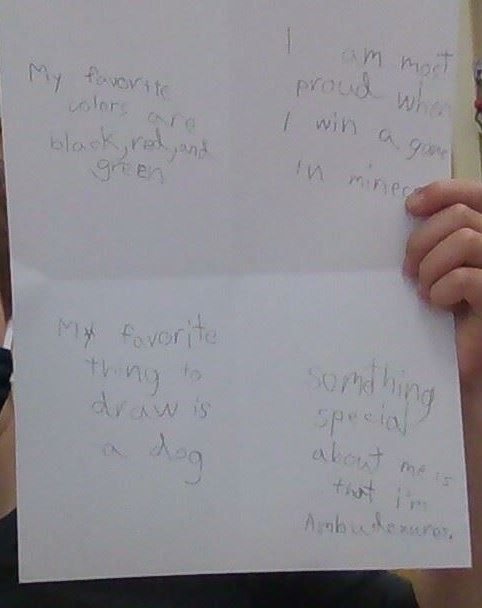 My favorite
colors are
black, red, and
green
I am most
proud when
I win a game
in minecr
My favorite
thing to
draw is
a dog
something
special
about me is
that i'm